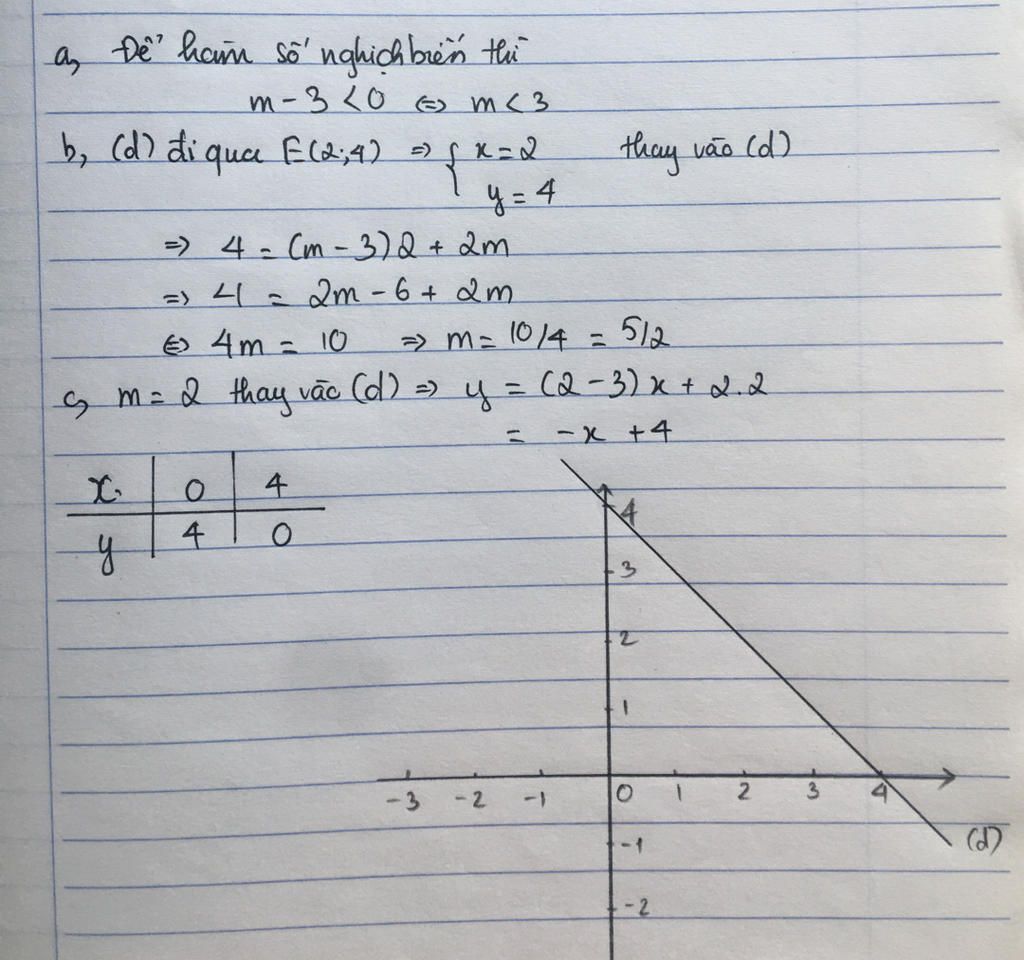 a, Để hàm số nghịch biến thì
m - 3 < 0 <=> m < 3
b, (d) đi qua E(2;4) => { x = 2 thay vào (d)
y = 4
=> 4 = (m - 3)2 + 2m
=> 4 = 2m - 6 + 2m
<=> 4m = 10 => m = 10/4 = 5/2
c, m = 2 thay vào (d) => y = (2 - 3)x + 2.2
= -x + 4
x 0 4
y 4 0
4
3
2
1
-3 -2 -1 0 1 2 3 4
-1 (d)
-2